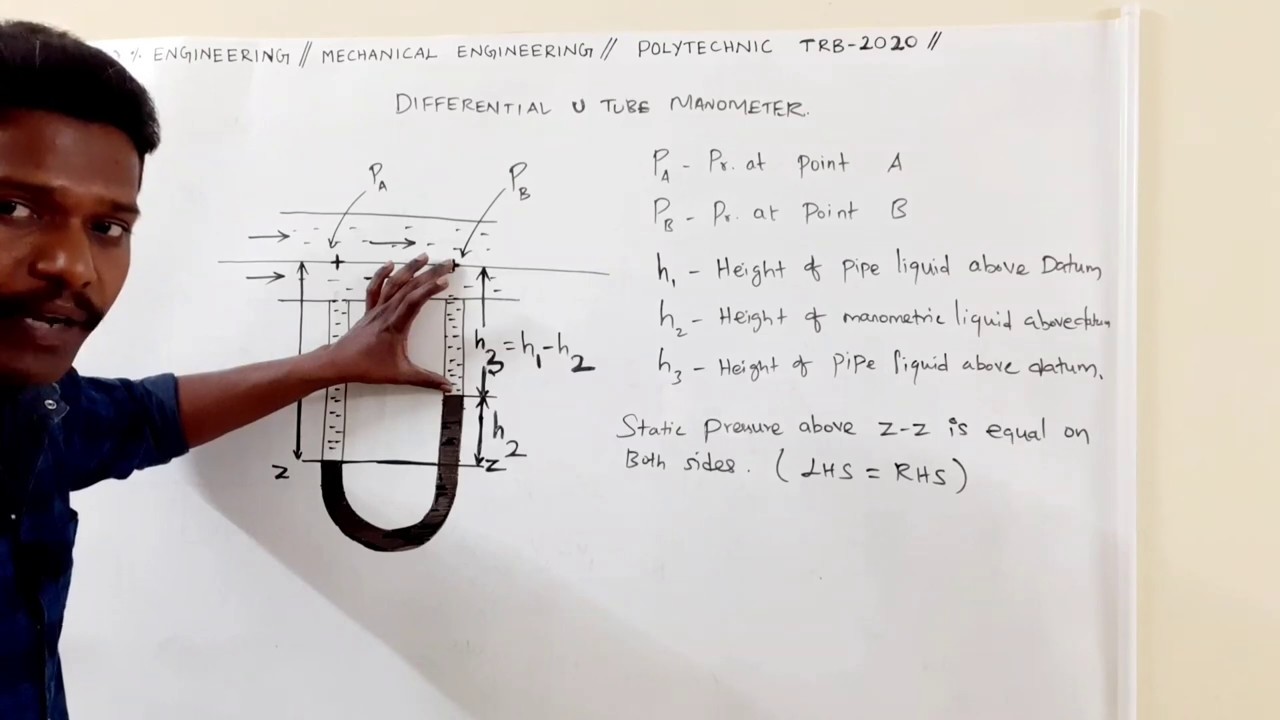 % ENGINEERING // MECHANICAL ENGINEERING // POLYTECHNIC TRB-2020 //
DIFFERENTIAL U TUBE MANOMETER.
PA
PB
PA - Pr. at point A
PB - Pr. at Point B
h1 - Height of pipe liquid above Datum
h2 - Height of manometric liquid above datum
h3 = h1 - h2
h3 - Height of pipe liquid above datum.
h2
Z
Z
Static Pressure above Z-Z is equal on
Both sides. (LHS = RHS)